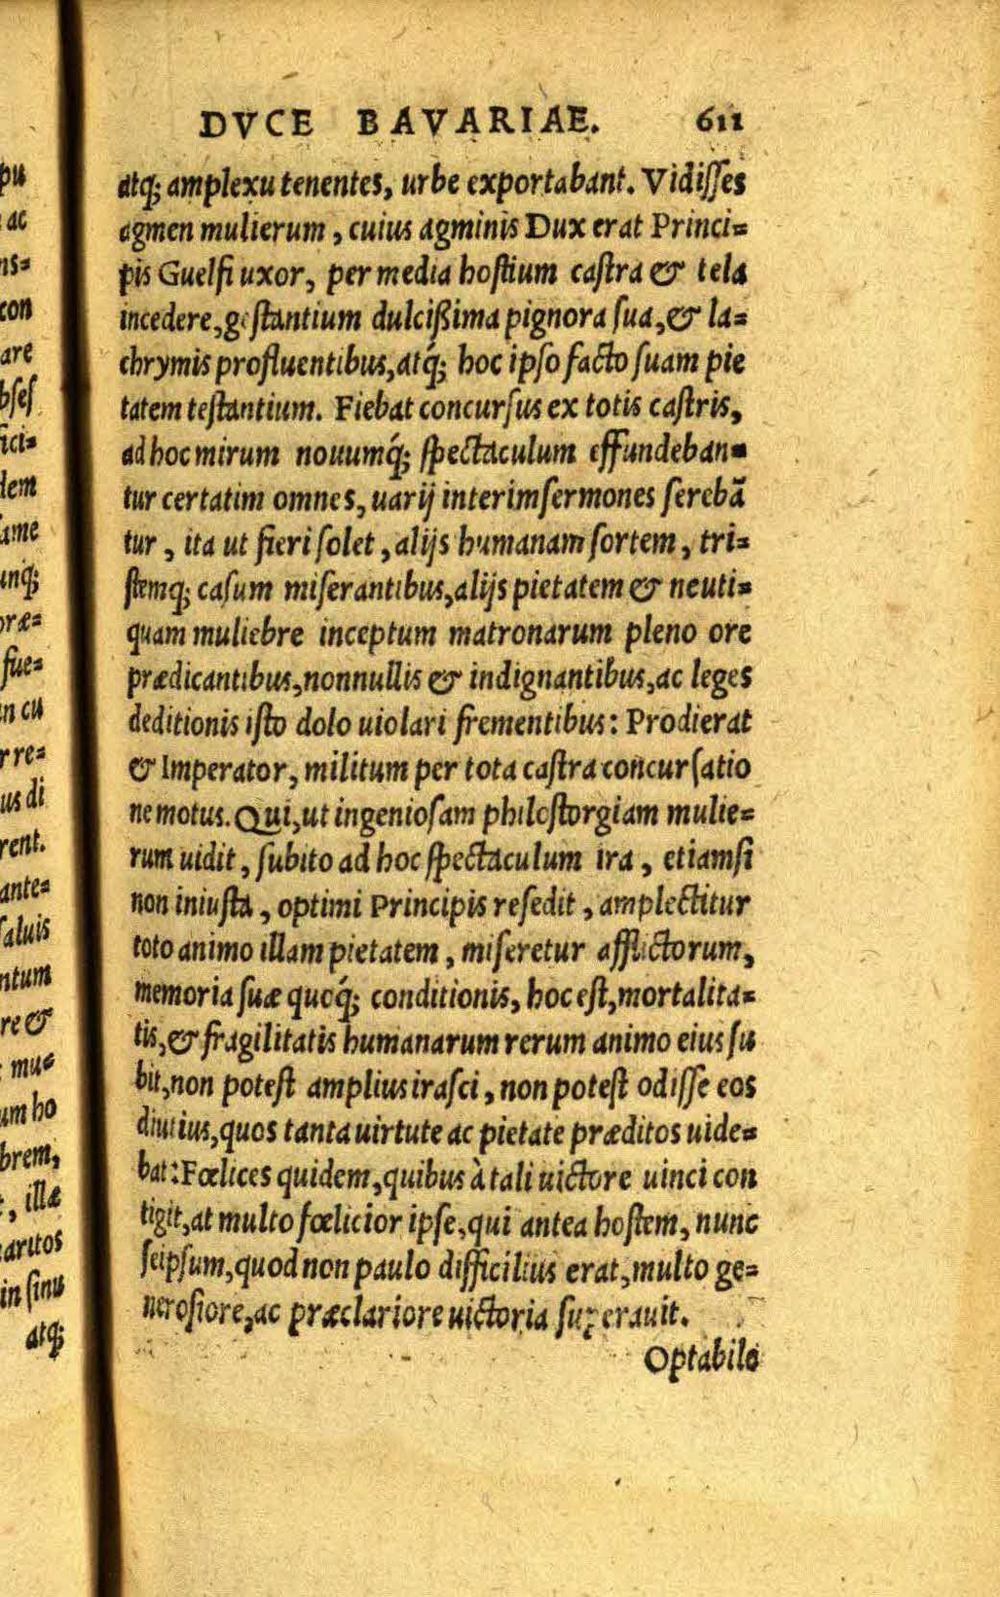 DVCE BAVARIAE. 611
atq; amplexu tenentes, urbe exportabant. Vidisses
agmen mulierum, cuius agminis Dux erat Princi=
pis Guelfi uxor, per media hostium castra & tela
incedere, gestantium dulcißima pignora sua, & la=
chrymis profluentibus, atq́; hoc ipso facto suam pie
tatem testantium. Fiebat concursus ex totis castris,
ad hoc mirum nouumq́; spectaculum effundeban=
tur certatim omnes, uarij interim sermones serebā
tur, ita ut fieri solet, alijs humanam sortem, tri=
stemq; casum miserantibus, alijs pietatem & neuti=
quam muliebre inceptum matronarum pleno ore
prædicantibus, nonnullis & indignantibus, ac leges
deditionis isto dolo uiolari frementibus: Prodierat
& Imperator, militum per tota castra concursatio
ne motus. Qui, ut ingeniosam philostorgiam mulie=
rum uidit, subito ad hoc spectaculum ira, etiamsi
non iniusta, optimi Principis resedit, amplectitur
toto animo illam pietatem, miseretur afflictorum,
memoria suæ quoq́; conditionis, hoc est, mortalita=
tis, & fragilitatis humanarum rerum animo eius su
bit, non potest amplius irasci, non potest odisse eos
diutius, quos tanta uirtute ac pietate præditos uide=
bat: Fœlices quidem, quibus à tali uictore uinci con
tigit, at multo fœlicior ipse, qui antea hostem, nunc
seipsum, quod non paulo difficilius erat, multo ge=
nerosiore, ac præclariore uictoria superauit.
Optabile
pu
ac
ns=
con
are
bses
ici=
dem
ame
unq;
præ=
sue=
n cu
r re=
us di
rent.
ante=
saluis
ntum
re &
mu=
um ho
brem,
, illæ
aritos
in sinu
atq;